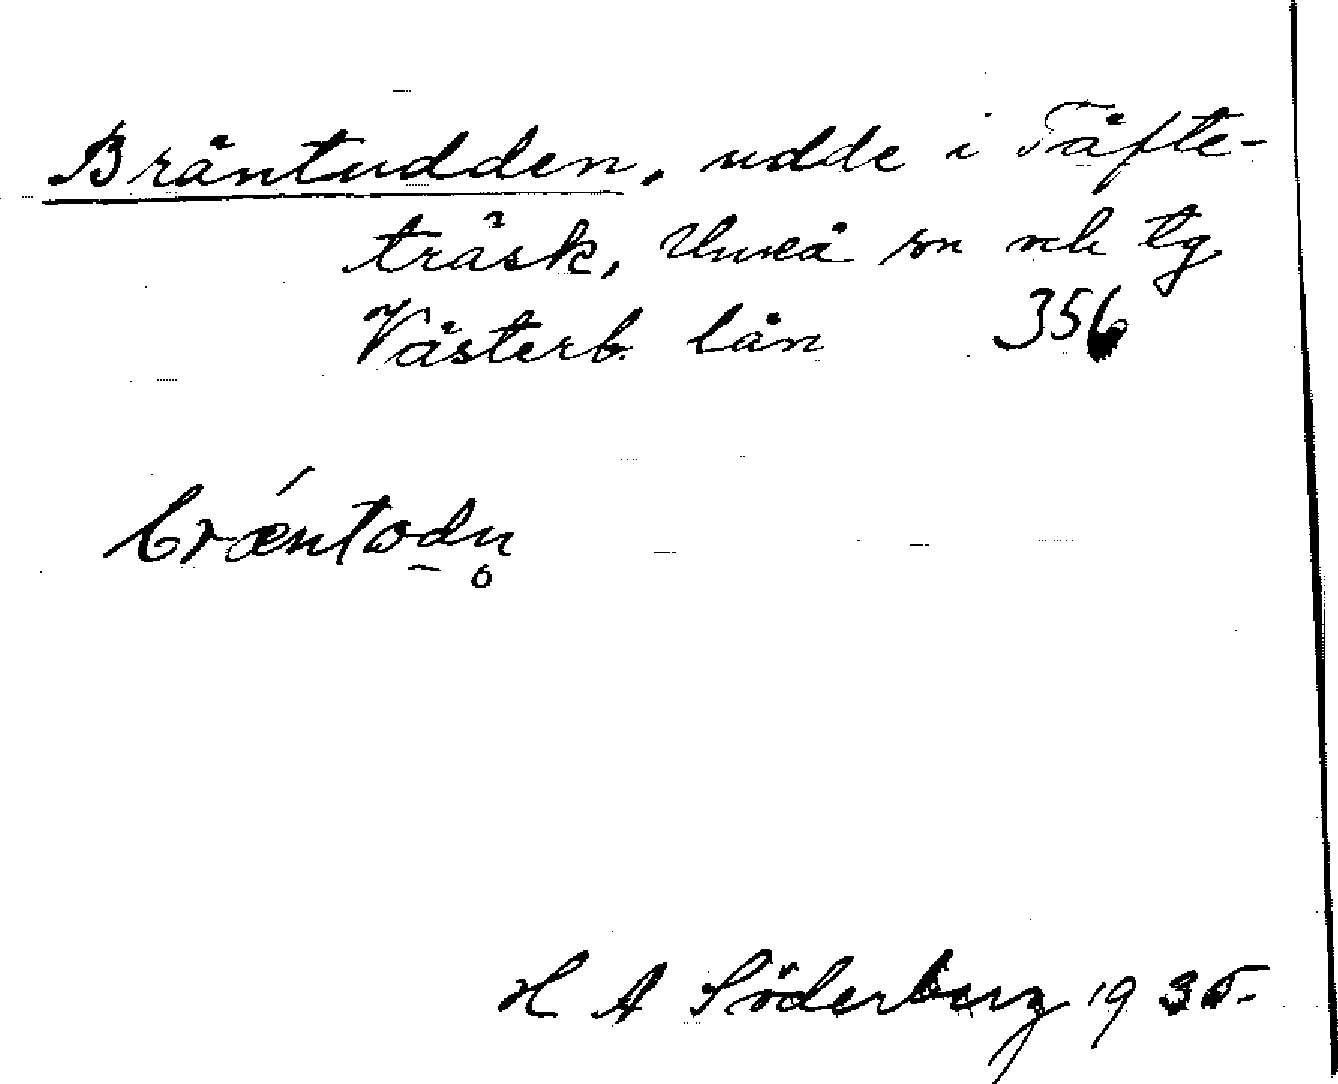 Bräntudden, udde i Täfte-
träsk, Umeå sn och tg
Västerb. län 356
bræntodn̥
H A Söderberg 1935.